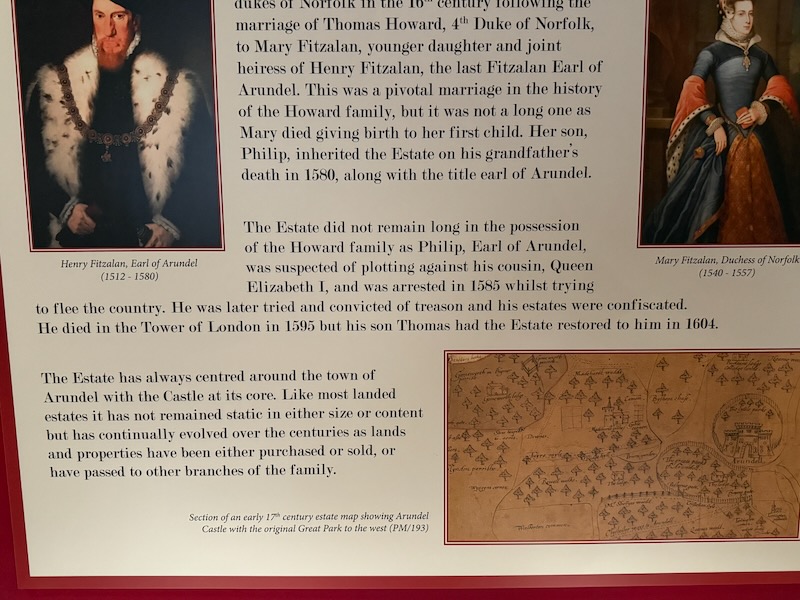 dukes of Norfolk in the 16th century following the
marriage of Thomas Howard, 4th Duke of Norfolk,
to Mary Fitzalan, younger daughter and joint
heiress of Henry Fitzalan, the last Fitzalan Earl of
Arundel. This was a pivotal marriage in the history
of the Howard family, but it was not a long one as
Mary died giving birth to her first child. Her son,
Philip, inherited the Estate on his grandfather's
death in 1580, along with the title earl of Arundel.
Henry Fitzalan, Earl of Arundel
(1512 - 1580)
Mary Fitzalan, Duchess of Norfolk
(1540 - 1557)
The Estate did not remain long in the possession
of the Howard family as Philip, Earl of Arundel,
was suspected of plotting against his cousin, Queen
Elizabeth I, and was arrested in 1585 whilst trying
to flee the country. He was later tried and convicted of treason and his estates were confiscated.
He died in the Tower of London in 1595 but his son Thomas had the Estate restored to him in 1604.
The Estate has always centred around the town of
Arundel with the Castle at its core. Like most landed
estates it has not remained static in either size or content
but has continually evolved over the centuries as lands
and properties have been either purchased or sold, or
have passed to other branches of the family.
Section of an early 17th century estate map showing Arundel
Castle with the original Great Park to the west (PM/193)